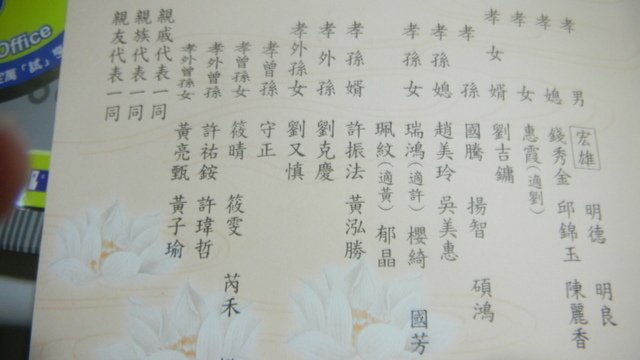 孝男 宏雄 明德 明良
孝媳 錢秀金 邱錦玉 陳麗香
孝女 惠霞(適劉)
孝女婿 劉吉鏞
孝孫 國騰 揚智 碩鴻
孝孫媳 趙美玲 吳美惠
孝孫女 瑞鴻(適許) 櫻綺 國芳
珮紋(適黃) 郁晶
孝孫婿 許振法 黃泓勝
孝外孫 劉克慶
孝外孫女 劉又慎
孝曾孫 守正
孝曾孫女 筱晴 筱雯 芮禾
孝外曾孫 許祐銨 許瑋哲
孝外曾孫女 黃亮甄 黃子瑜
親戚代表一同
親族代表一同
親友代表一同
Office
「試」